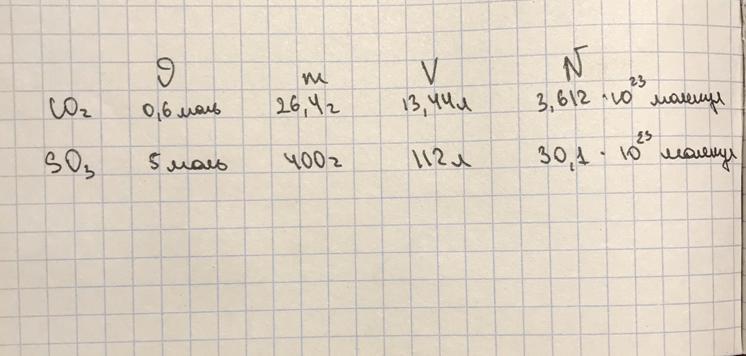 ν m V N
CO₂ 0,6 моль 26,4 г 13,44 л 3,612 · 10²³ молекул
SO₃ 5 моль 400 г 112 л 30,1 · 10²³ молекул